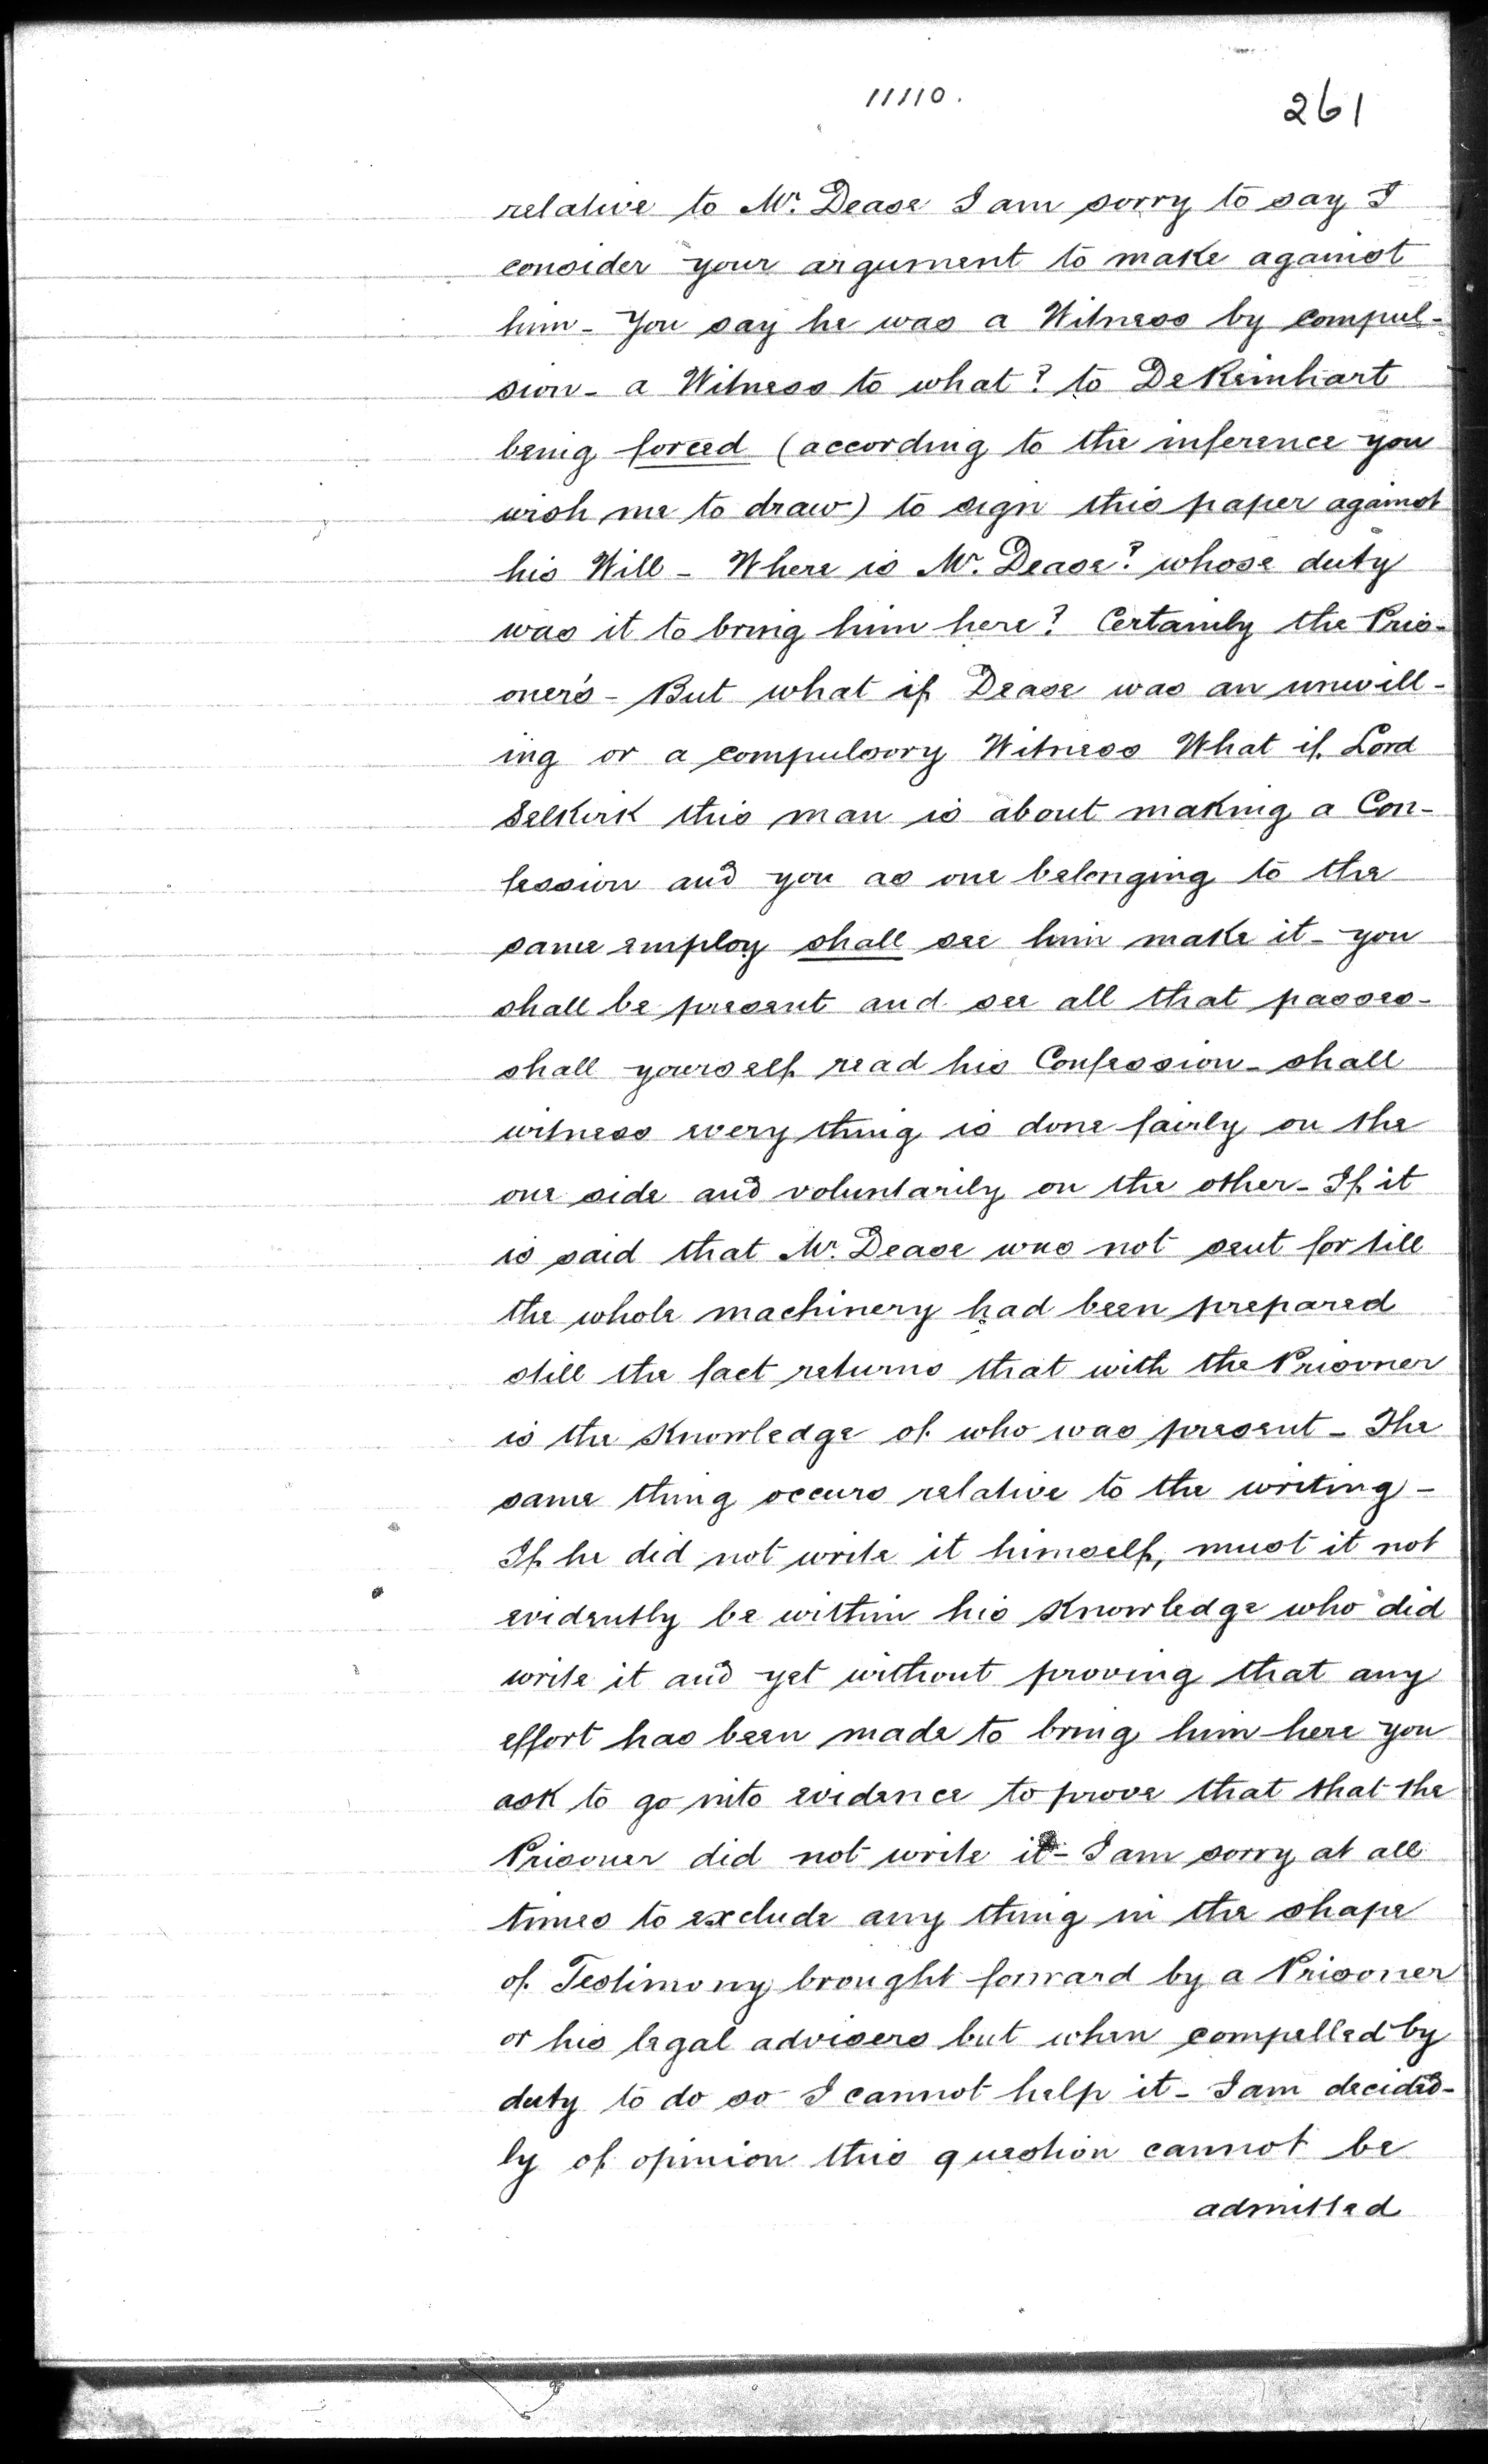 11110.
261
relative to Mr. Dease I am sorry to say I
consider your argument to make against
him - You say he was a Witness by compul-
sion - a Witness to what? to DeReinhart
being forced (according to the inference you
wish me to draw) to sign this paper against
his Will - Where is Mr. Dease? whose duty
was it to bring him here? Certainly the Pris-
oner's - But what if Dease was an unwill-
ing or a compulsory Witness What if Lord
Selkirk this man is about making a Con-
fession and you as one belonging to the
same employ shall see him make it - you
shall be present and see all that passes -
shall yourself read his Confession - shall
witness every thing is done fairly on the
one side and voluntarily on the other - If it
is said that Mr. Dease was not sent for till
the whole machinery had been prepared
still the fact returns that with the Prisoner
is the Knowledge of who was present - The
same thing occurs relative to the writing -
If he did not write it himself, must it not
evidently be within his Knowledge who did
write it and yet without proving that any
effort has been made to bring him here you
ask to go into evidence to prove that that the
Prisoner did not write it - I am sorry at all
times to exclude any thing in the shape
of Testimony brought forward by a Prisoner
or his legal advisers but when compelled by
duty to do so I cannot help it - I am decided-
ly of opinion this question cannot be
admitted